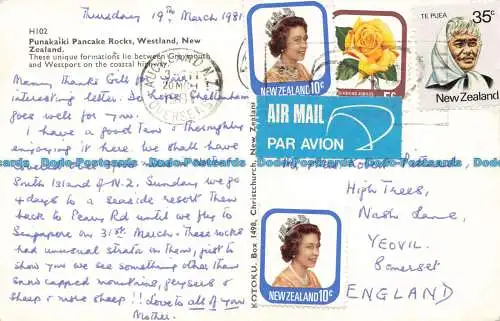 Thursday 19th March 1981
H102
Punakaiki Pancake Rocks, Westland, New
Zealand.
These unique formations lie between Greymouth
and Westport on the coastal highway.
Many thanks for your
interesting letter. Do hope Cheltenham
goes well for you.
I have a good tan & thoroughly
enjoying it here. We shall have
South Island of N.Z. Sunday we go
4 days to a seaside resort then
back to Rd until we fly to
Singapore on 31st March. These rocks
had unusual strata on them, just to
show you we see something other than
snow capped mountains, geysers &
sheep & more sheep!! Love to all of you
Mother.
KOTOKU. Box 1498, Christchurch, New Zealand
NEW ZEALAND 10c
5c
TE PUEA
35c
New Zealand
AIR MAIL
PAR AVION
High Trees,
Nash Lane,
YEOVIL.
Somerset
ENGLAND
NEW ZEALAND 10c
Postcards-Downunder